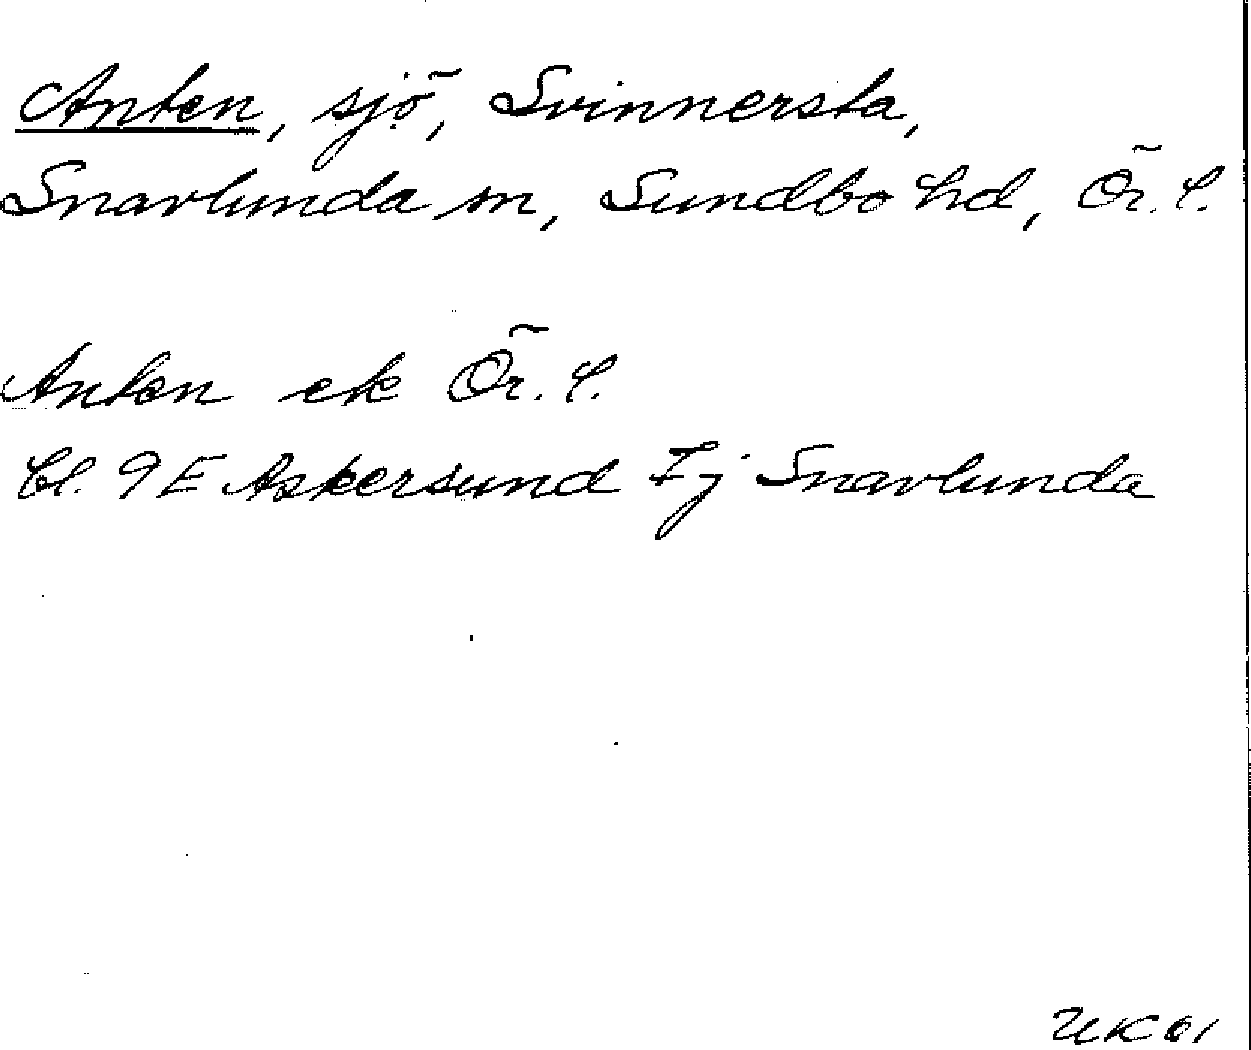 Anten, sjö, Svinnersta,
Snavlunda sn, Sundbo hd, Ör. l.
Anten ek Ör. l.
bl. 9 E Askersund 7 j Snavlunda
UK 61